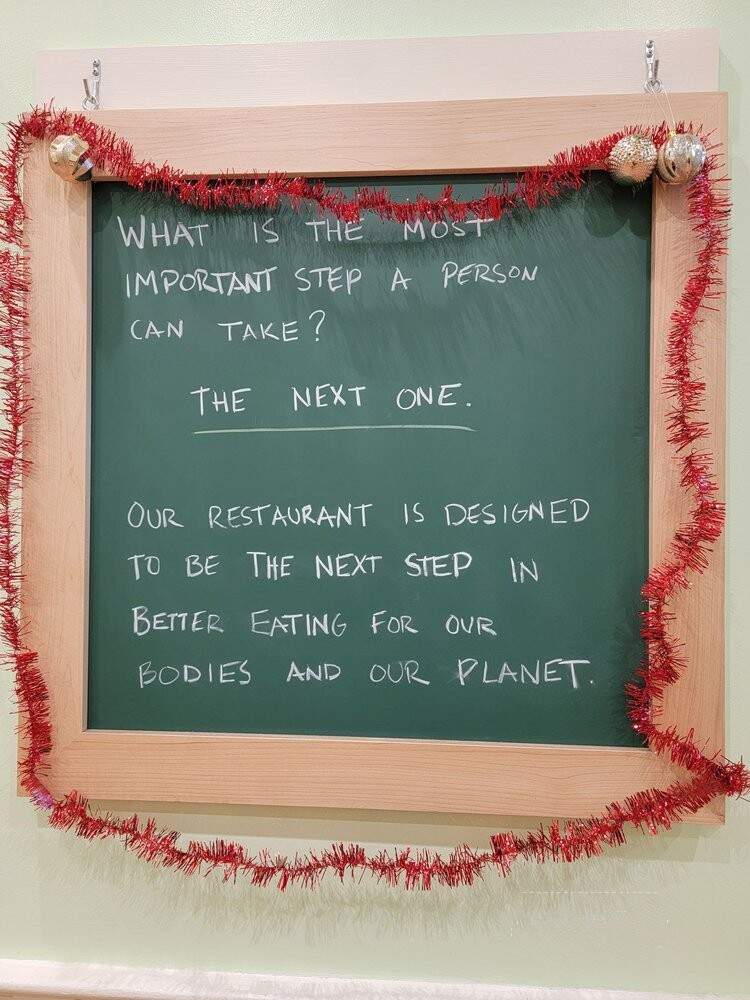 WHAT IS THE MOST
IMPORTANT STEP A PERSON
CAN TAKE?
THE NEXT ONE.
OUR RESTAURANT IS DESIGNED
TO BE THE NEXT STEP IN
BETTER EATING FOR OUR
BODIES AND OUR PLANET.